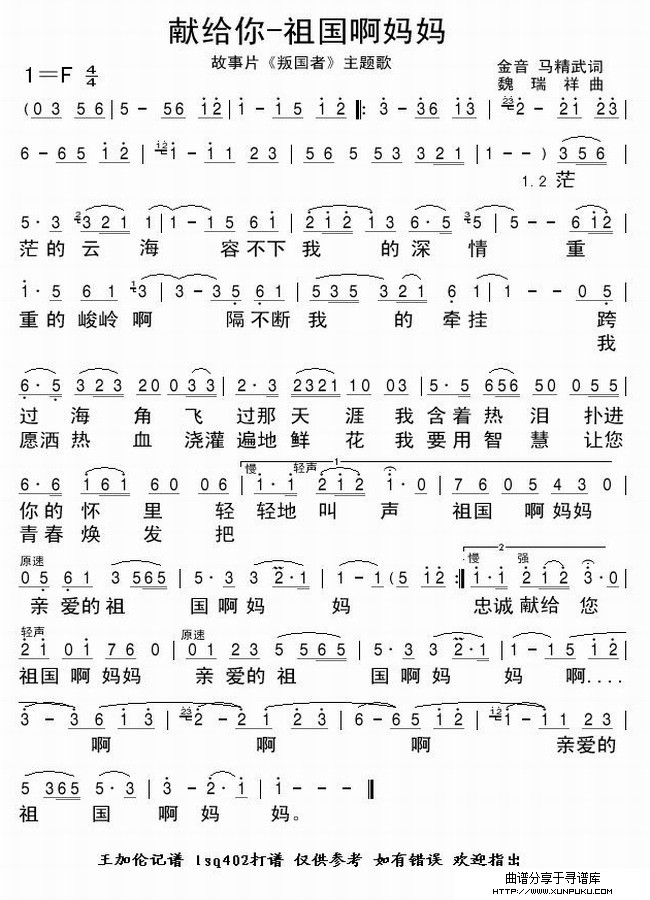 献给你-祖国啊妈妈
故事片《叛国者》主题歌
1=F 4/4
金音 马精武词
魏 瑞 祥 曲
(0 3 5 6 | 5 - 5 6 1 2 | 1 - - 1 2 ‖: 3 - 3 6 1 3 | 2 - 2 1 2 3 |
6 - 6 5 1 2 | 1 - 1 1 2 3 | 5 6 5 5 3 3 2 1 | 1 - - ) 3 5 6 |
1.2 茫
5· 3 3 2 1 1 | 1 - 1 5 6 1 | 2 1 2 1 3 6· 5 5 | 5 - - 6 1 2 |
茫 的 云 海 容 不 下 我 的 深 情 重
1· 5 6 1 3 | 3 - 3 5 6 1 | 5 3 5 3 2 1 6 1 | 1 - - 0 5 |
重 的 峻岭 啊 隔 不断 我 的 牵 挂 跨
我
6· 5 3 2 3 2 0 0 3 3 | 2· 3 2 3 2 1 1 0 0 3 | 5· 5 6 5 6 5 0 0 5 5 |
过 海 角 飞 过那 天 涯 我 含 着 热 泪 扑进
愿洒 热 血 浇灌 遍地 鲜 花 我 要 用 智 慧 让您
慢 轻声 1
6· 6 1 6 1 6 0 0 6 | 1· 1 2 1 2 1· 0 | 7 6 0 5 4 3 0 |
你 的 怀 里 轻 轻地 叫 声 祖国 啊 妈妈
青 春 焕 发 把
原速 慢 强 2
0 5 6 1 3 5 6 5 | 5· 3 3 2· 1 | 1 - 1 (5 1 2 :‖ 1· 1 2 1 2 3· 0 |
亲 爱的 祖 国 啊 妈 妈 忠诚 献给 您
轻声 原速
2 1 0 1 7 6 0 | 0 1 2 3 5 5 6 5 | 5· 3 3 2· 1 | 1 - 1 5 1 2 |
祖国 啊 妈妈 亲 爱的 祖 国 啊 妈 妈 啊....
3 - 3 6 1 3 | 2 - 2 1 2 3 | 6 - 6 5 1 2 | 1 - 1 1 2 3 |
啊 啊 啊 亲爱的
5 3 6 5 5· 3 | 3 - 2· 1 | 1 - - - ‖
祖 国 啊 妈 妈。
王加伦记谱 lsq402打谱 仅供参考 如有错误 欢迎指出
曲谱分享于寻谱库
HTTP://WWW.XUNPUKU.COM